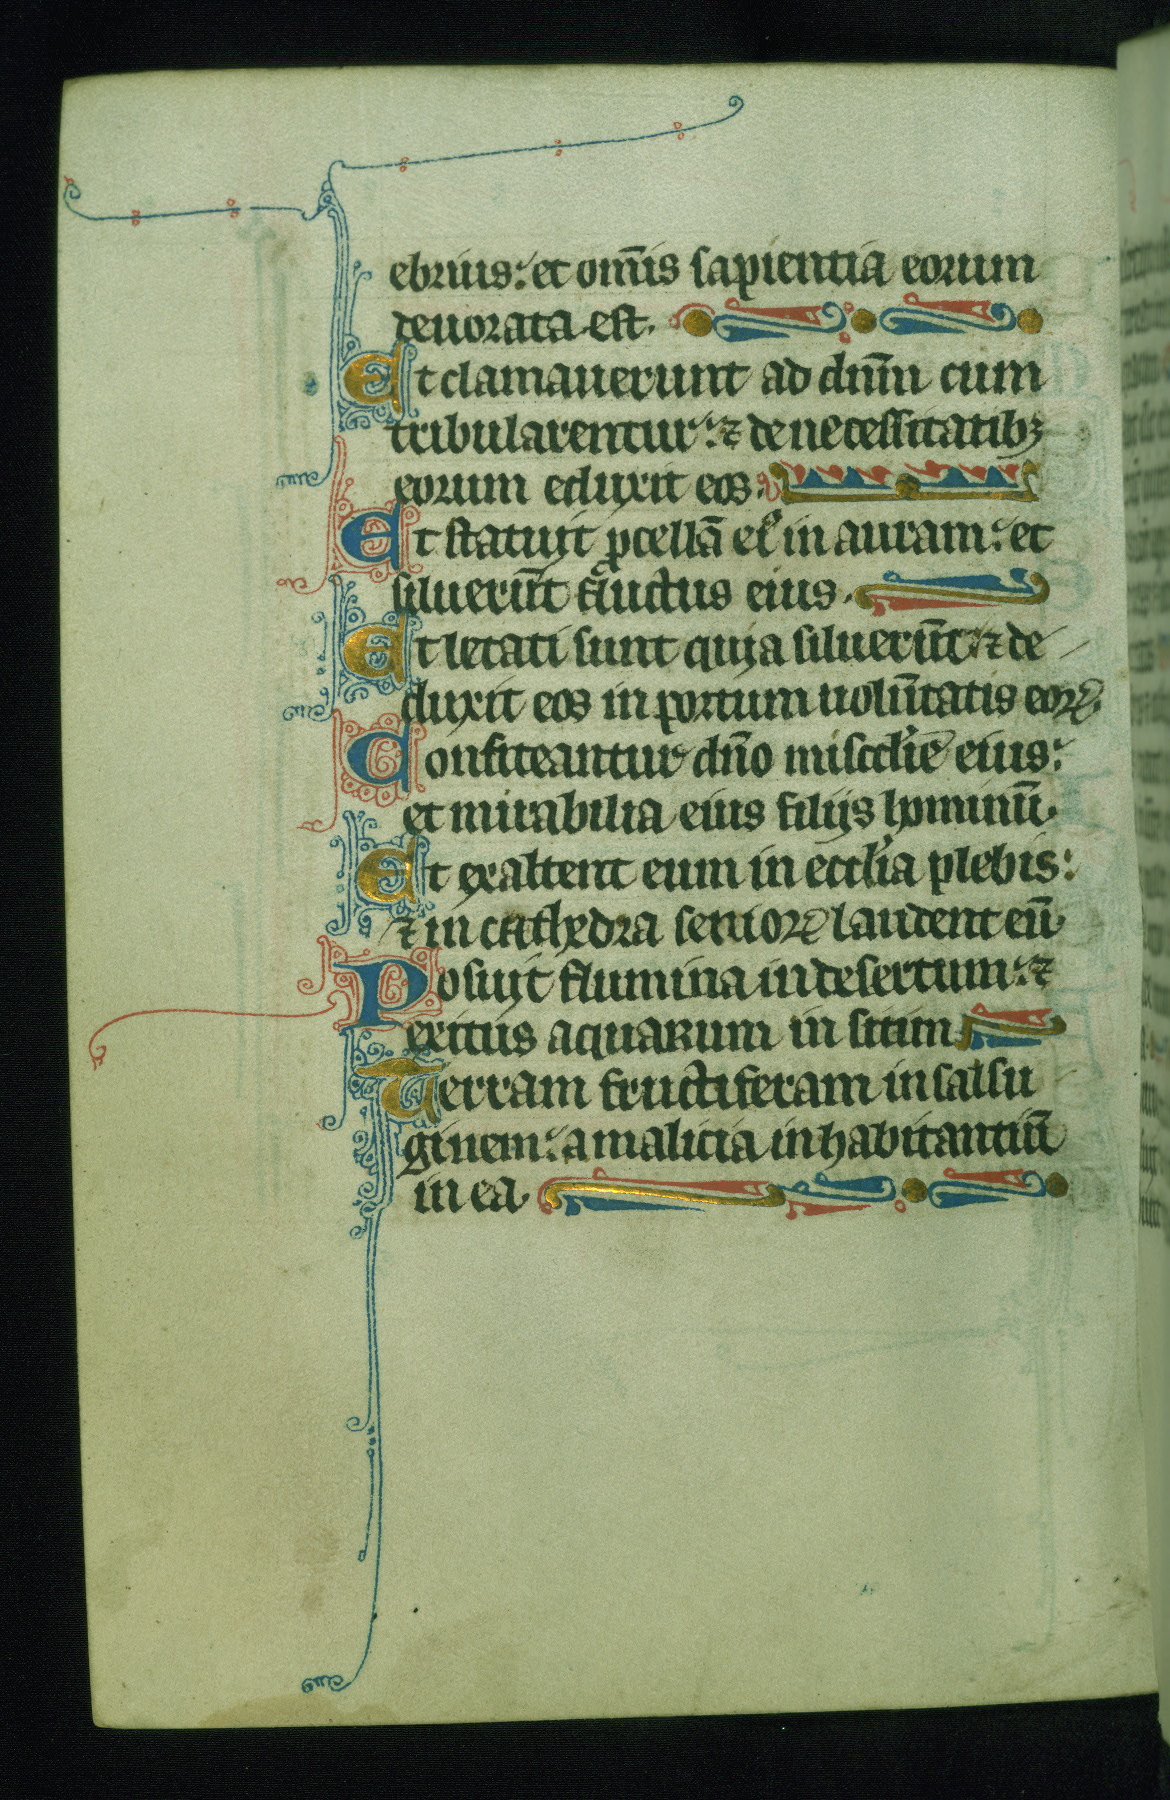 ebrius: et om̅is sapientia eorum
deuorata est.
Et clamauerunt ad dn̅m cum
tribularentur: ⁊ de necessitatibꝫ
eorum eduxit eos.
Et statuit ꝓcellā eiꝰ in auram: et
siluerūt fluctus eius.
Et letati sunt quia siluerūt: ⁊ de
duxit eos in portum uolūtatis eoꝝ.
Confiteantur dn̅o misc̅die eius:
et mirabilia eius filijs hominū.
Et exaltent eum in eccl̅ia plebis:
⁊ in cathedra senioꝝ laudent eū.
Posuit flumina in desertum: ⁊
exitus aquarum in sitim
Terram fructiferam in salsu
ginem: a malicia inhabitantiū
in ea.